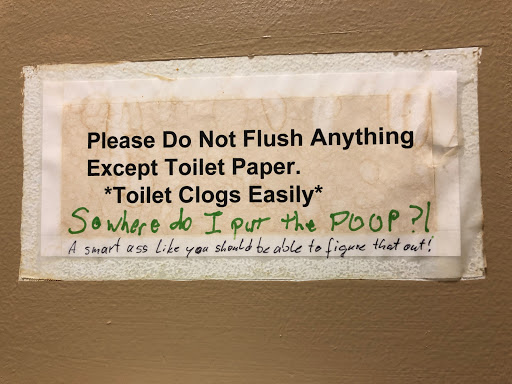 Please Do Not Flush Anything
Except Toilet Paper.
*Toilet Clogs Easily*
So where do I put the POOP?!
A smart ass like you should be able to figure that out!